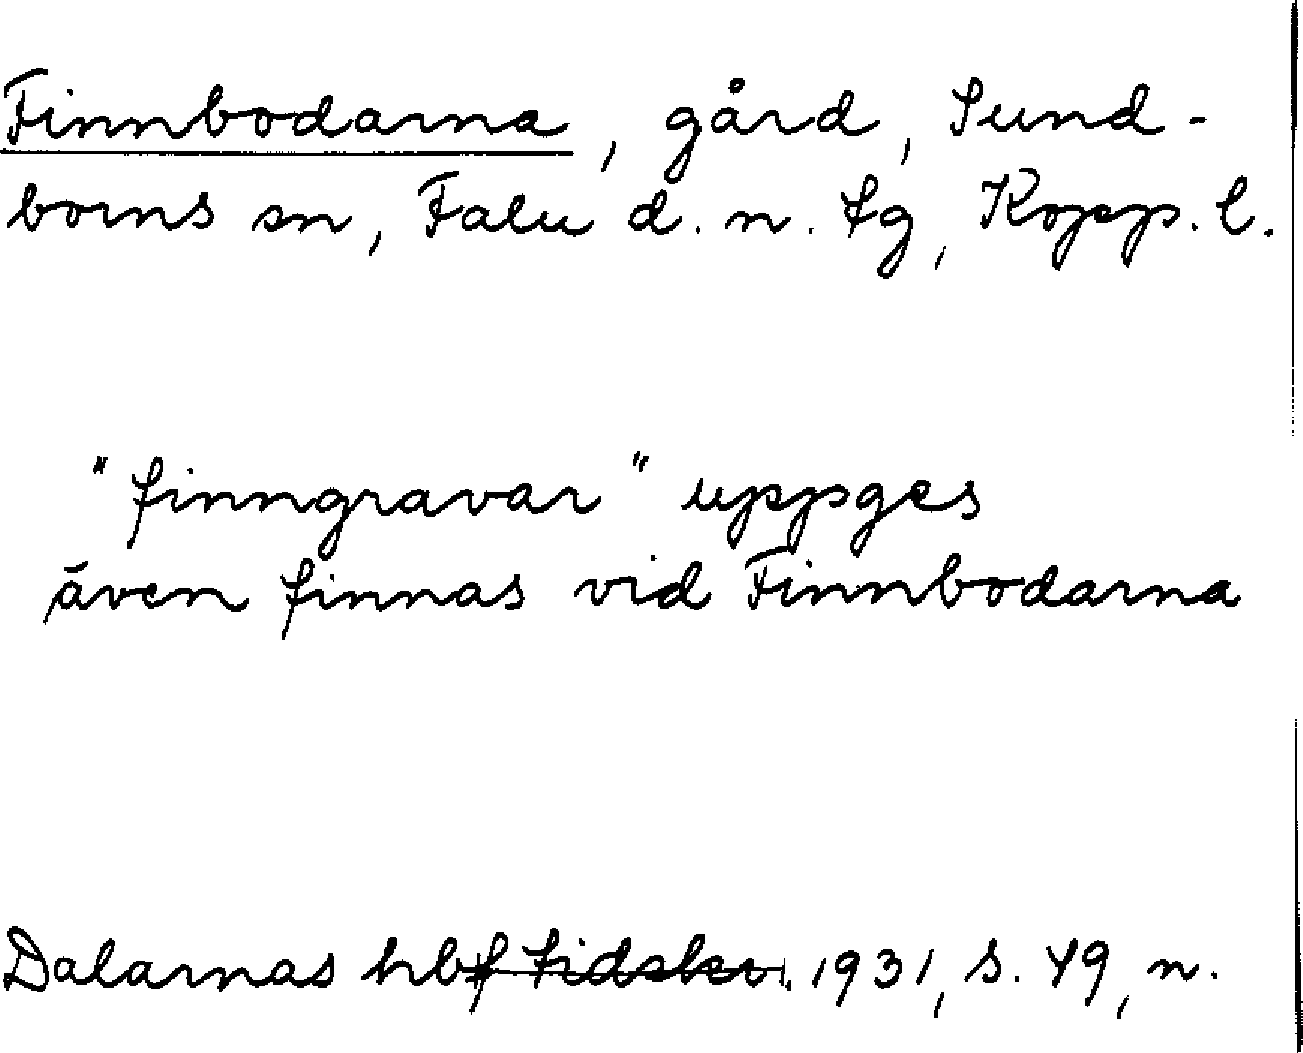 Finnbodarna, gård, Sund-
borns sn, Falu d. n. tg, Kopp. l.
"finngravar" uppges
även finnas vid Finnbodarna
Dalarnas hbf tidskr. 1931, s. 49, n.